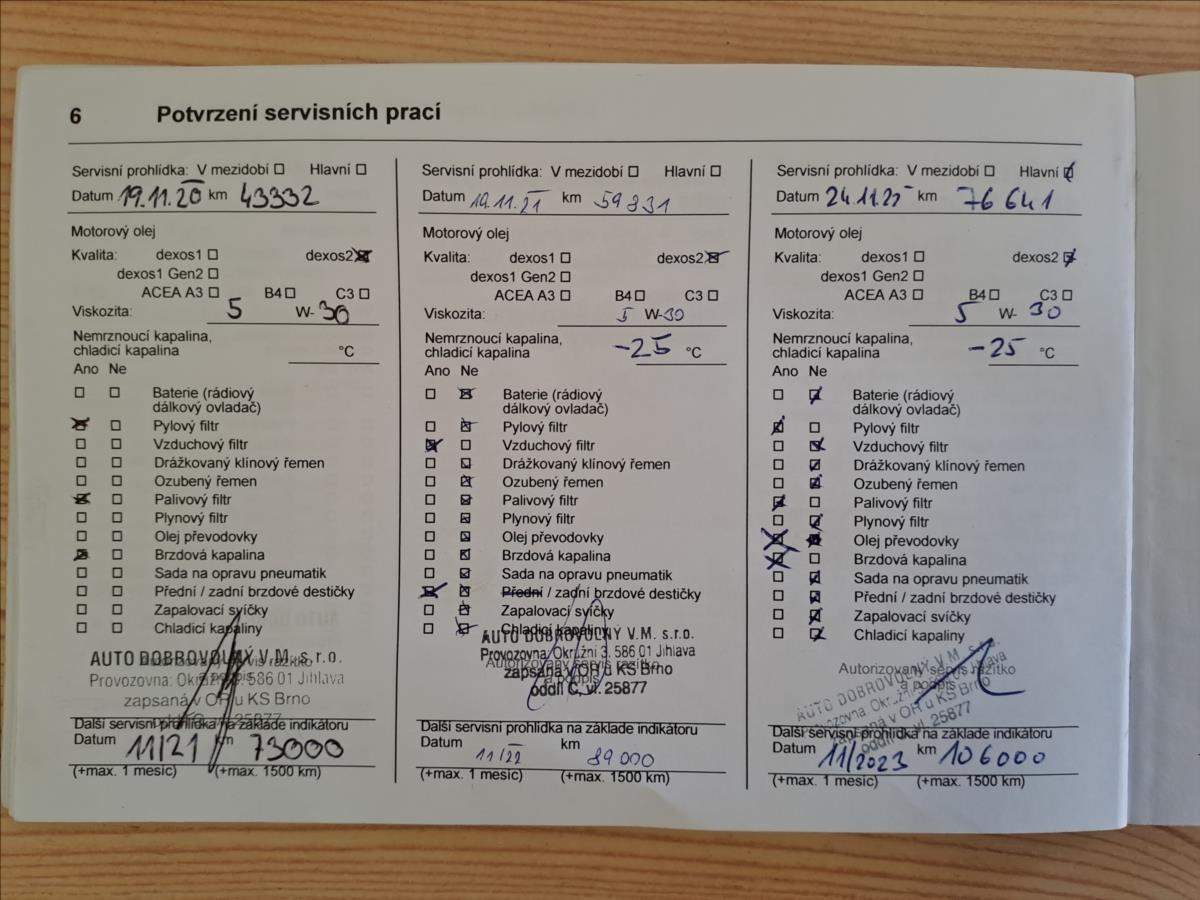 6 Potvrzení servisních prací
Servisní prohlídka: V mezidobí Hlavní
Datum 19.11.20 km 43332
Motorový olej
Kvalita: dexos1 dexos2
dexos1 Gen2
ACEA A3 B4 C3
Viskozita: 5 W-30
Nemrznoucí kapalina,
chladicí kapalina °C
Ano Ne
Baterie (rádiový
dálkový ovladač)
Pylový filtr
Vzduchový filtr
Drážkovaný klínový řemen
Ozubený řemen
Palivový filtr
Plynový filtr
Olej převodovky
Brzdová kapalina
Sada na opravu pneumatik
Přední / zadní brzdové destičky
Zapalovací svíčky
Chladicí kapaliny
AUTO DOBROVOLNÝ V.M. s.r.o.
Provozovna: Okružní 3, 586 01 Jihlava
zapsaná v OR u KS Brno
Další servisní prohlídka na základe indikátoru
Datum 11/21 km 73000
(+max. 1 mesic) (+max. 1500 km)
Servisní prohlídka: V mezidobí Hlavní
Datum 19.11.21 km 59831
Motorový olej
Kvalita: dexos1 dexos2
dexos1 Gen2
ACEA A3 B4 C3
Viskozita: 5 W-30
Nemrznoucí kapalina,
chladicí kapalina -25 °C
Ano Ne
Baterie (rádiový
dálkový ovladač)
Pylový filtr
Vzduchový filtr
Drážkovaný klínový řemen
Ozubený řemen
Palivový filtr
Plynový filtr
Olej převodovky
Brzdová kapalina
Sada na opravu pneumatik
Přední / zadní brzdové destičky
Zapalovací svíčky
Chladicí kapaliny
AUTO DOBROVOLNÝ V.M. s.r.o.
Provozovna: Okružní 3, 586 01 Jihlava
Autorizovaný servis razítko
a podpis
zapsaná v OR u KS Brno
oddíl C, vl. 25877
Další servisní prohlídka na základe indikátoru
Datum 11/22 km 89000
(+max. 1 mesic) (+max. 1500 km)
Servisní prohlídka: V mezidobí Hlavní
Datum 24.11.22 km 76641
Motorový olej
Kvalita: dexos1 dexos2
dexos1 Gen2
ACEA A3 B4 C3
Viskozita: 5 W-30
Nemrznoucí kapalina,
chladicí kapalina -25 °C
Ano Ne
Baterie (rádiový
dálkový ovladač)
Pylový filtr
Vzduchový filtr
Drážkovaný klínový řemen
Ozubený řemen
Palivový filtr
Plynový filtr
Olej převodovky
Brzdová kapalina
Sada na opravu pneumatik
Přední / zadní brzdové destičky
Zapalovací svíčky
Chladicí kapaliny
Autorizovaný servis razítko
a podpis
AUTO DOBROVOLNÝ V.M. s.r.o.
zapsaná v OR u KS Brno
oddíl C, vl. 25877
Další servisní prohlídka na základe indikátoru
Datum 11/2023 km 106000
(+max. 1 mesic) (+max. 1500 km)